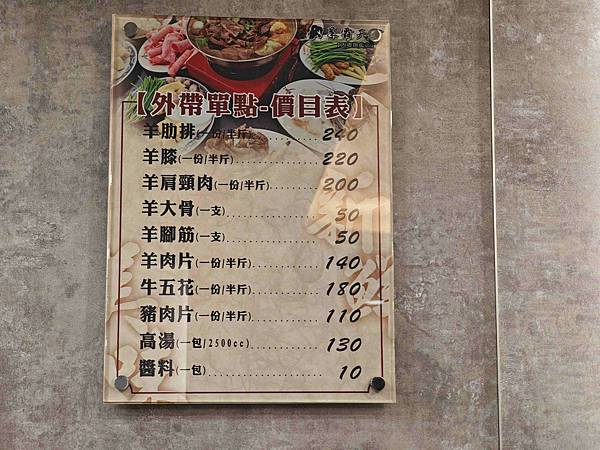 【外帶單點-價目表】
羊肋排(一份/半斤)............240
羊膝(一份/半斤)...............220
羊肩頸肉(一份/半斤).........200
羊大骨(一支)..................50
羊腳筋(一支)..................50
羊肉片(一份/半斤)............140
牛五花(一份/半斤)............180
豬肉片(一份/半斤)............110
高湯(一包/2500cc)............130
醬料(一包)....................10